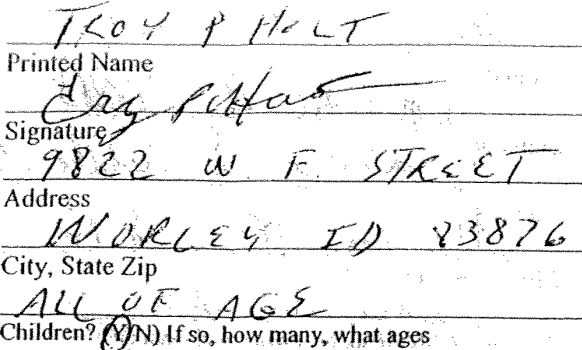 TROY P HOLT
Printed Name
Troy P Holt
Signature
9822 W F STREET
Address
WORLEY ID 83876
City, State Zip
ALL OF AGE
Children? (Y/N) If so, how many, what ages